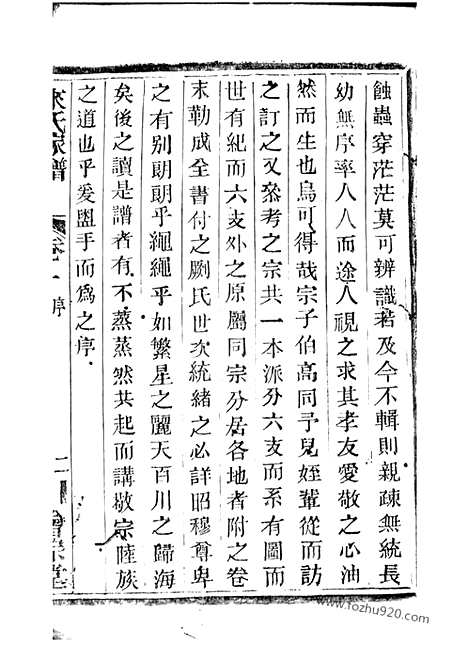 蝕蟲穿茫茫莫可辨識若及今不輯則親疎無統長
幼無序率人人而途人視之求其孝友愛敬之心油
然而生也烏可得哉宗子伯高同予兒姪輩從而訪
之訂之又叅考之宗共一本派分六支而系有圖而
世有紀而六支外之原屬同宗分居各地者附之卷
末勒成全書付之劂氏世次統緒之必詳昭穆尊卑
之有別朗朗乎繩繩乎如繁星之麗天百川之歸海
矣後之讀是譜者有不蒸蒸然共起而講敬宗陸族
之道也乎爰盥手而爲之序
氏家譜
序
二
www.fozhu920.com